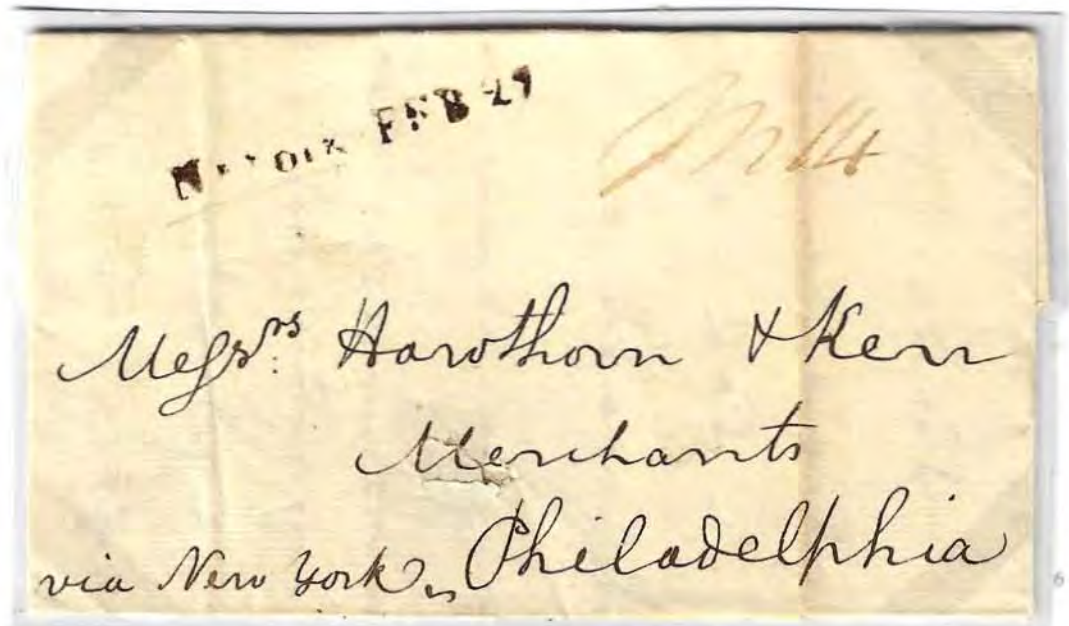 FEB 27
Messrs. Hawthorn & Kerr
Merchants
via New York, Philadelphia
6